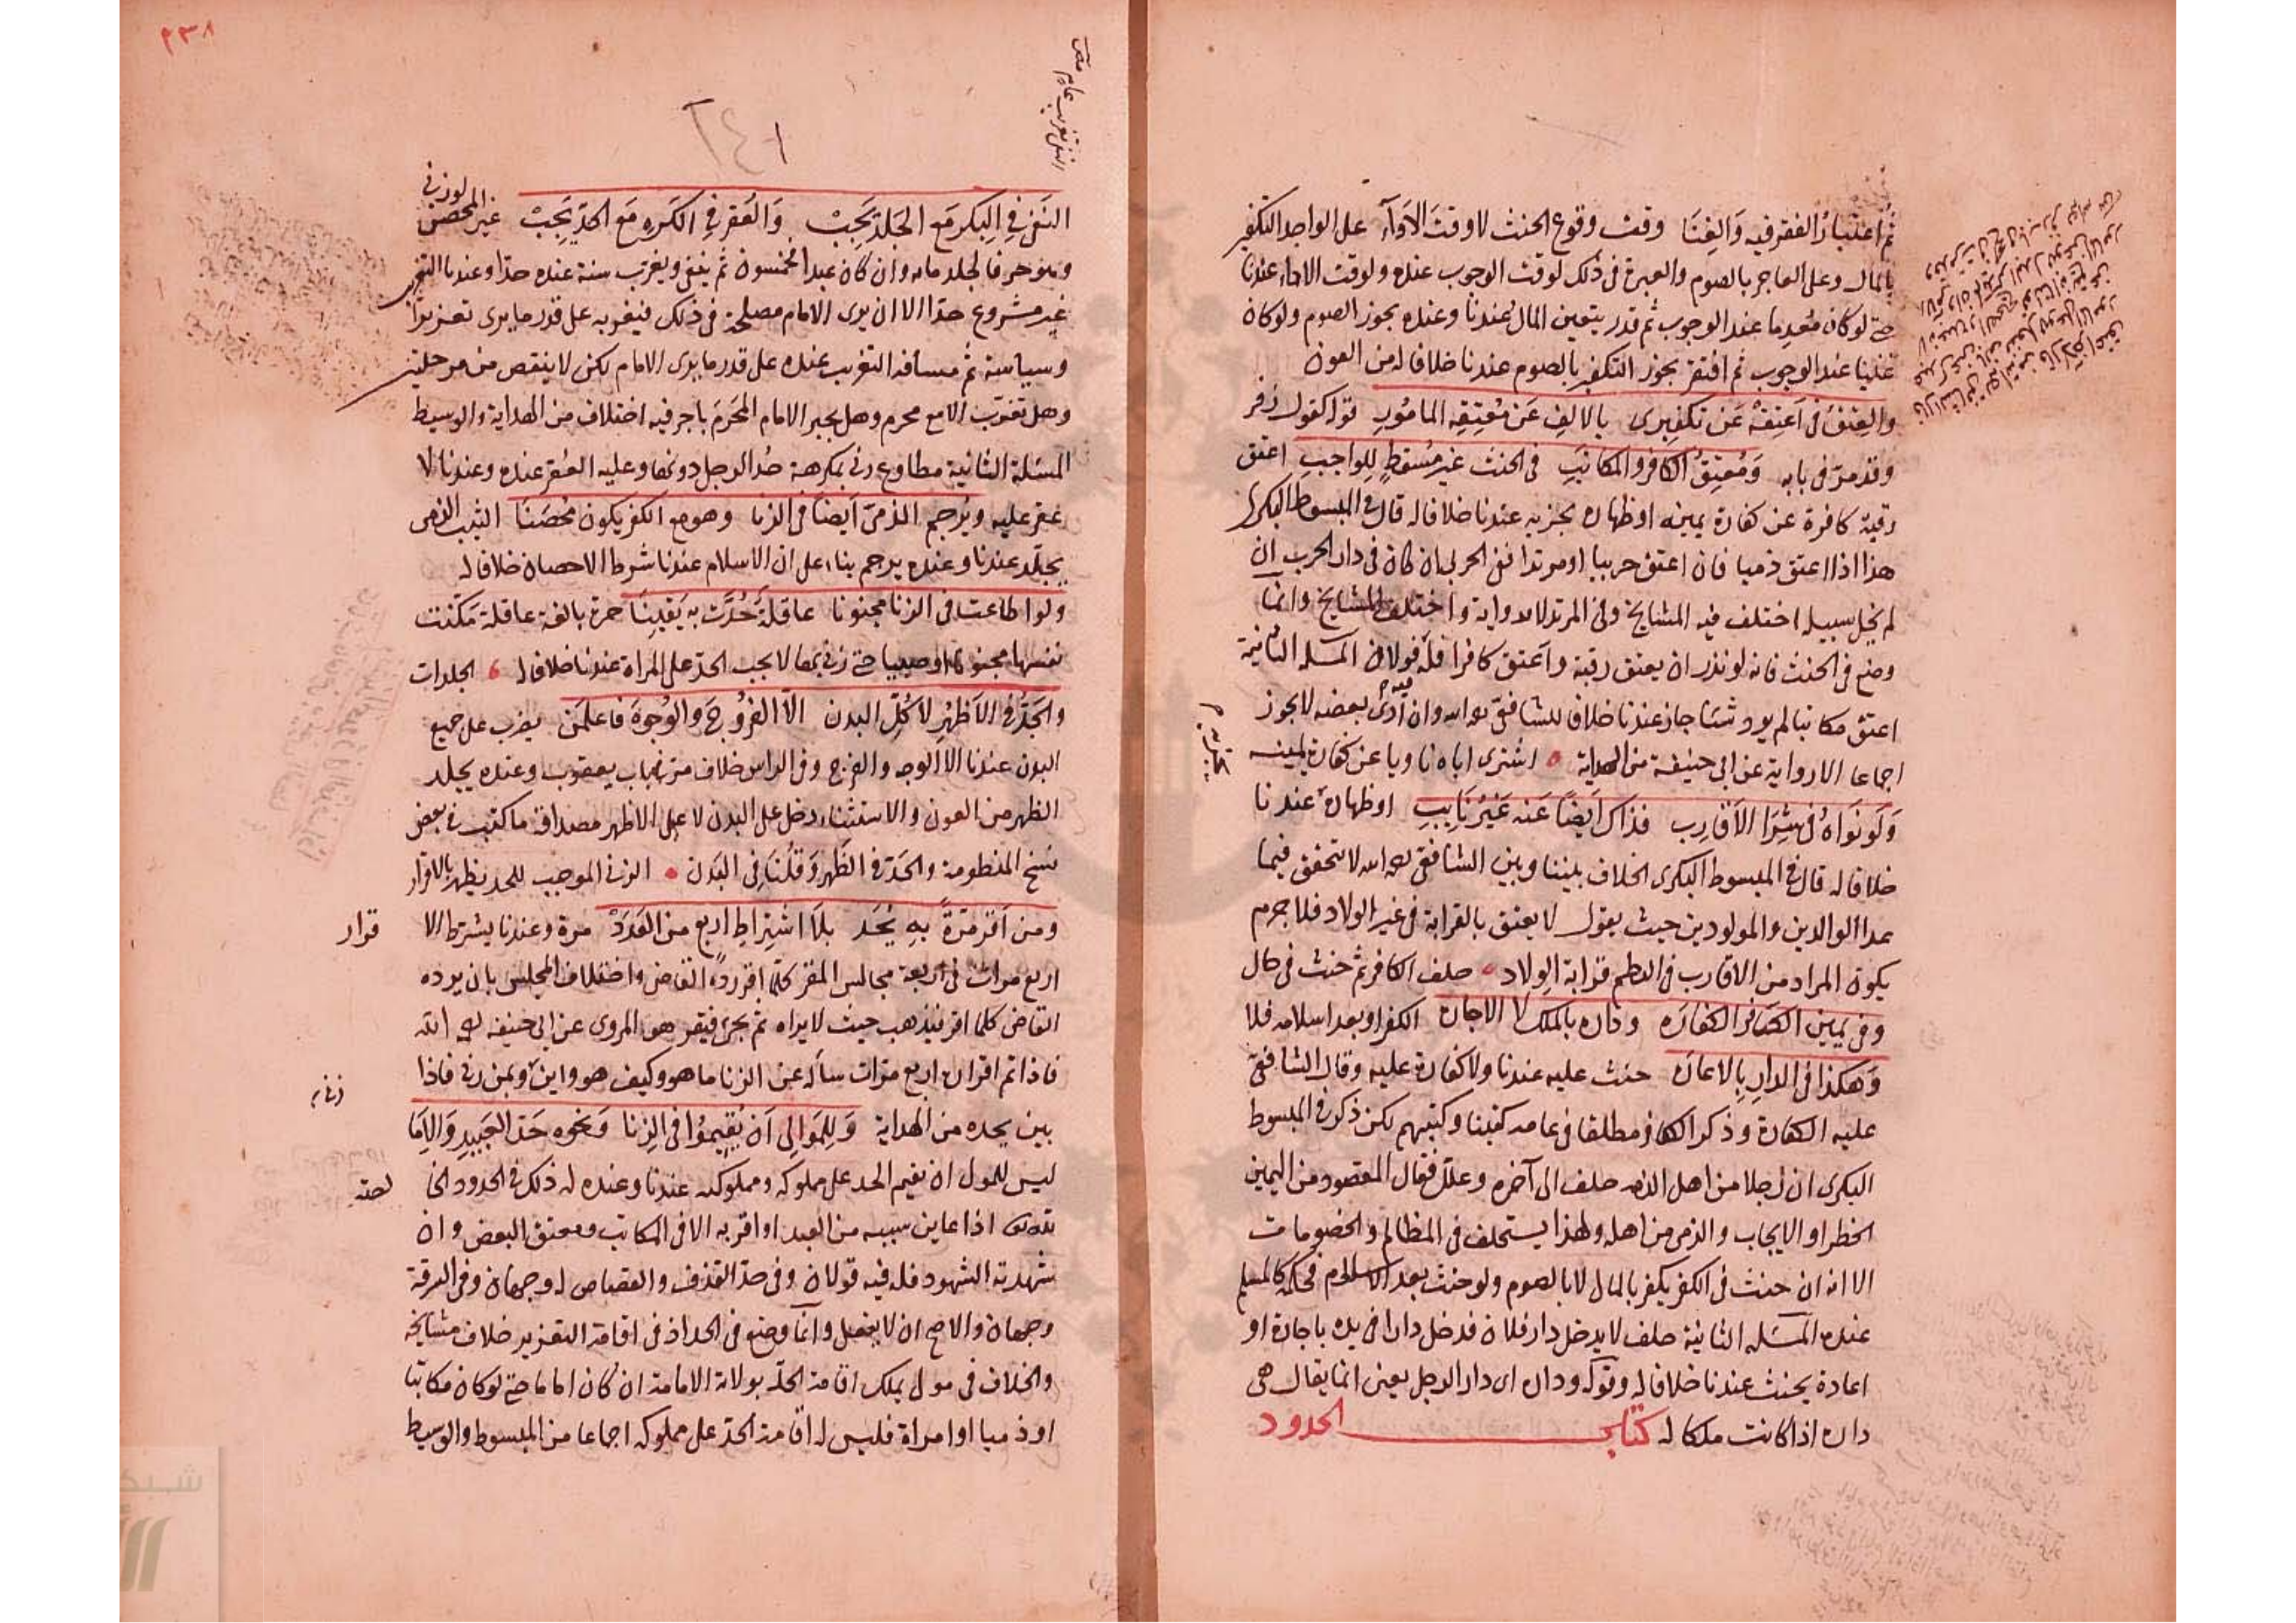 ثم اعتبار الفقر فيه والغنا وقت وقوع الحنث لا وقت الادآء على الواجد التكفير
بالمال وعلى العاجز بالصوم والعبرة فى ذلك لوقت الوجوب عنده ولوقت الاداء عندنا
حتى لو كان معدما عند الوجوب ثم قدر يتعين المال عندنا وعنده يجوز الصوم ولو كان
غنيا عند الوجوب ثم افتقر يجوز التكفير بالصوم عندنا خلافا له من العون
والعتق فى اعتقه عن تكفيرى بالالف عن معتقه المامور قوله كقول زفر
وقد مر فى بابه ومعتق الكافر والمكاتب فى الحنث غير مسقط للواجب اعتق
رقبة كافرة عن كفارة يمينه او ظهاره يجزيه عندنا خلافا له قال فى المبسوط البكرى
هذا اذا اعتق ذميا فان اعتق حربيا او مرتدا ففى الحربى ان كان فى دار الحرب ان
لم يخل سبيله اختلف فيه المشايخ وفى المرتد لا رواية واختلف المشايخ وانما
وضع فى الحنث فانه لو نذر ان يعتق رقبة واعتق كافرا فله قولان المسله الثانية
اعتق مكاتبا لم يود شئا جاز عندنا خلافا للشافعى رحمه الله وان ادى بعضه لا يجوز
اجماعا الا رواية عن ابى حنيفة من الهداية اشترى اباه ناويا عن كفارة يمينه
ولو نواه فى شرا الاقارب فذاك ايضا عنه غير نايب او ظهاره عندنا
خلافا له قال فى المبسوط البكرى الخلاف بيننا وبين الشافعى رحمه الله لا يتحقق فيما
عدا الوالدين والمولودين حيث يقول لا يعتق بالقرابة فى غير الولاد فلا جرم
يكون المراد من الاقارب فى النظم قرابة الولاد حلف الكافر ثم حنث فى حال
وفى يمين الكافر الكفاره وداره بالملك لا الاجاره الكفر او بعد اسلامه فلا
وهكذا فى الدار بالاعاره حنث عليه عندنا ولا كفارة عليه وقال الشافعى
عليه الكفارة وذكر الكافر مطلقا فى عامه كتبنا وكتبهم لكن ذكر فى المبسوط
البكرى ان رجلا من اهل الذمه حلف الى آخره وعلل فقال المقصود من اليمين
الحظر او الايجاب والذمى من اهله ولهذا يستحلف فى المظالم والخصومات
الا انه ان حنث فى الكفر يكفر بالمال لا بالصوم ولو حنث بعد الاسلام فحكمه كالمسلم
عنده المسله الثانية حلف لا يدخل دار فلان فدخل دارا فى يده باجارة او
اعارة يحنث عندنا خلافا له وقوله وداره اى دار الرجل يعنى انما يقال هى
داره اذا كانت ملكا له كتاب الحدود
٢٣٨
النفى تغريب عام
النفى فى البكر مع الجلد يجب والعقر فى الكره مع الحد يجب غير المحصن لو زنى
وهو حر فالجلد مايه وان كان عبدا فخمسون ثم ينفى ويغرب سنة عنده حدا وعندنا التغريب
غير مشروع حدا الا ان يرى الامام مصلحة فى ذلك فيغربه على قدر ما يرى تعزيرا
وسياسة ثم مسافة التغريب عنده على قدر ما يرى الامام لكن لا ينقص من مرحلتين
وهل تغرب الا مع محرم وهل يجبر الامام المحرم باجر فيه اختلاف من الهداية والوسيط
المسئلة الثانية مطاوع زنى بمكرهة حد الرجل دونها وعليه العقر عنده وعندنا لا
عقر عليه ويرجم الذمى ايضا فى الزنا وهو مع الكفر يكون محصنا الثيب الذمى
يجلد عندنا وعنده يرجم بناء على ان الاسلام عندنا شرط الاحصان خلافا له
ولو اطاعت فى الزنا مجنونا عاقلة حدت به يقينا حرة بالغة عاقلة مكنت
نفسها مجنونا او صبيا حتى زنى بها لا يجب الحد على المراة عندنا خلافا له الجلدات
والحد فى الاظهر لا كل البدن الا الفروج والوجوه فاعلمن يضرب على جميع
البدن عندنا الا الوجه والفرج وفى الراس خلاف مر فى باب يعقوب وعنده يجلد
الظهر من العون والاستثناء دخل على البدن لا على الاظهر مصداقه ما كتب فى بعض
نسخ المنظومة والحد فى الظهر وقلنا فى البدن الزنى الموجب للحد يظهر بالاقرار
ومن اقر مرة به يحد بلا اشتراط اربع من العدد مرة وعندنا يشترط الا
قرار
اربع مرات فى اربعة مجالس المقر كلما اقر رده القاضى واختلاف المجلس بان يرده
القاضى كلما اقر فيذهب حيث لا يراه ثم يجئ فيقر هو المروى عن ابى حنيفه رحمه الله
فاذا تم اقراره اربع مرات سأله عن الزنا ما هو وكيف هو واين وبمن زنى فاذا
بين يحده من الهداية وللموالى ان يقيموا فى الزنا ونحوه حد العبيد والاما
ليس للمولى ان يقيم الحد على مملوكه ومملوكته عندنا وعنده له ذلك فى الحدود الخا
لصة
اذا عاين سببه من العبد او اقر به الا فى المكاتب ومعتق البعض وان
شهد به الشهود فله فيه قولان وفى حد القذف والقصاص له وجهان وفى السرقة
وجهان والاصح ان لا يفعل وانما وضع فى الحد اذ فى اقامة التعزير خلاف مشايخه
والخلاف فى مولى يملك اقامة الحد بولاية الامامة ان كان اماما حتى لو كان مكاتبا
او ذميا او امراة فليس له اقامة الحد على مملوكه اجماعا من المبسوط والوسيط